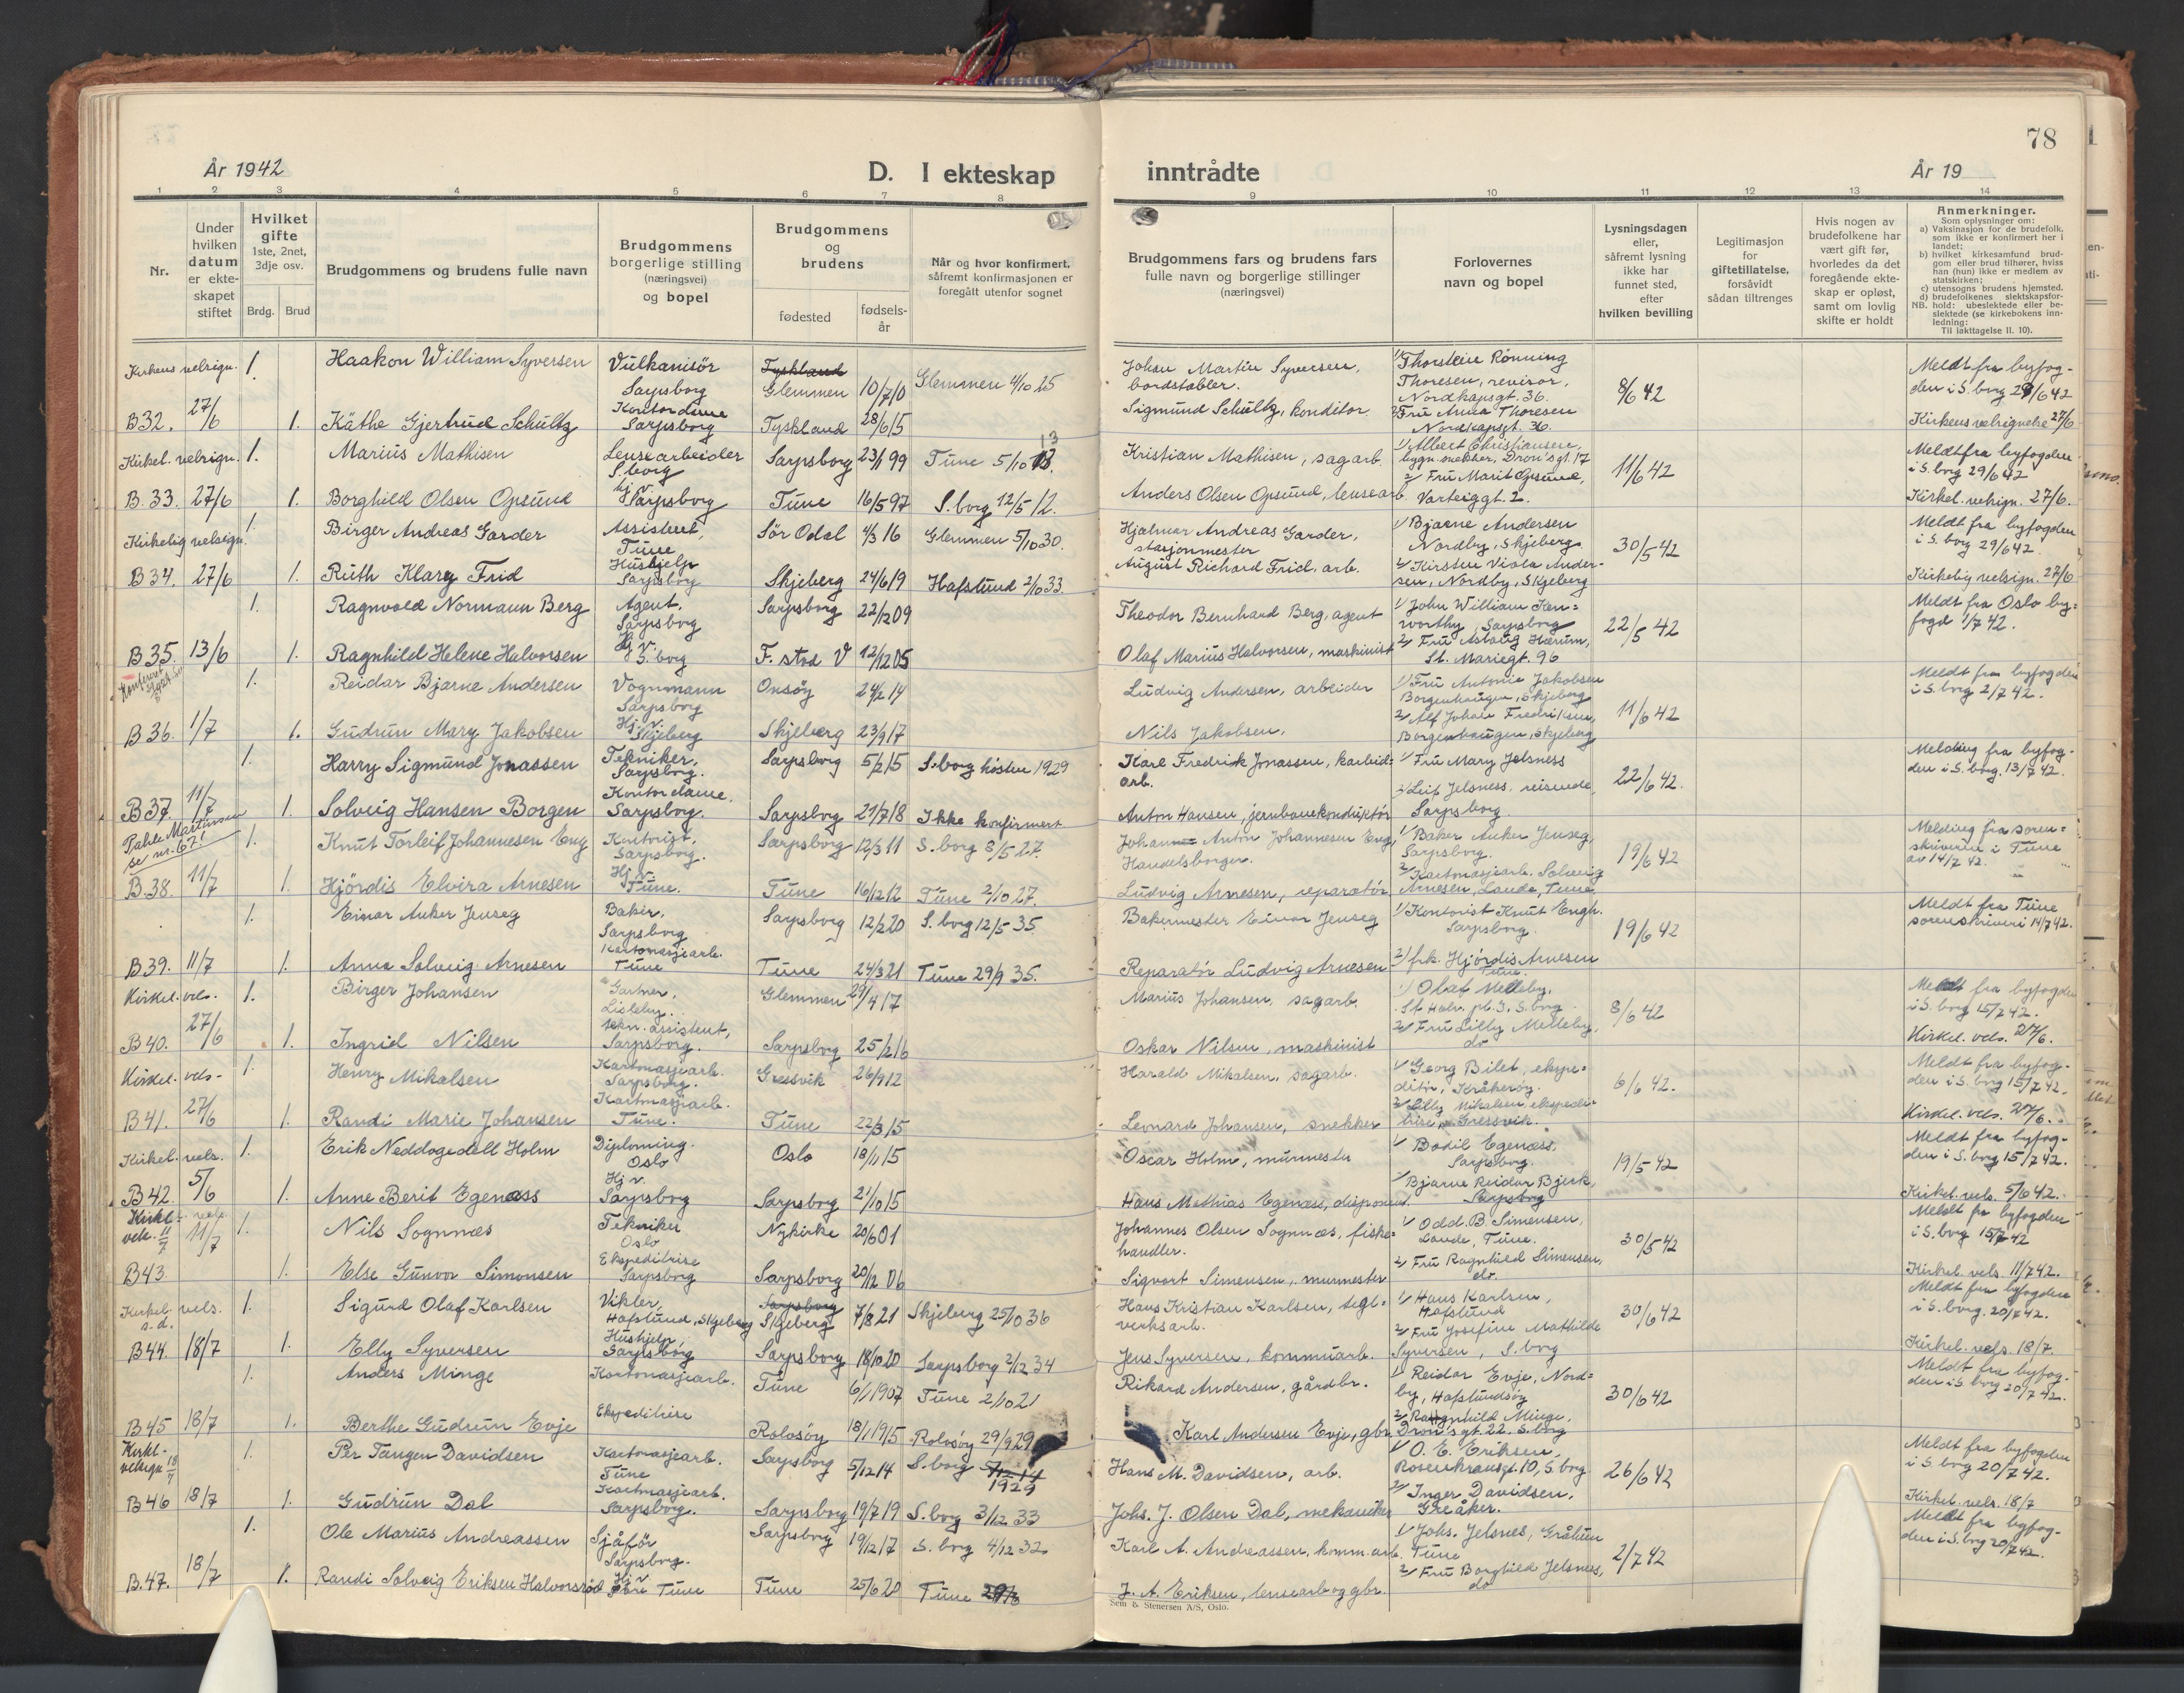 År 1942
D. I ekteskap
inntrådte
År 19
78
1 2 3 4 5 6 7 8
9 10 11 12 13 14
Nr.
Under hvilken datum er ekteskapet stiftet
Hvilket gifte 1ste, 2net, 3dje osv.
Brdg. Brud
Brudgommens og brudens fulle navn
Brudgommens borgerlige stilling (næringsvei) og bopel
Brudgommens og brudens
fødested
fødselsår
Når og hvor konfirmert, såfremt konfirmasjonen er foregått utenfor sognet
Brudgommens fars og brudens fars fulle navn og borgerlige stillinger (næringsvei)
Forlovernes navn og bopel
Lysningsdagen eller, såfremt lysning ikke har funnet sted, efter hvilken bevilling
Legitimasjon for giftetillatelse, forsåvidt sådan tiltrenges
Hvis nogen av brudefolkene har vært gift før, hvorledes da det foregående ekteskap er opløst, samt om lovlig skifte er holdt
Anmerkninger.
Som oplysninger om:
a) Vaksinasjon for de brudefolk, som ikke er konfirmert her i landet;
b) hvilket kirkesamfund brudgom eller brud tilhører, hviss han (hun) ikke er medlem av statskirken;
c) utensogns brudens hjemsted.
d) brudefolkenes slektskapsforhold: ubeslektede eller beslektede (se kirkebokens innledning:
NB. Til iakttagelse II. 10).
Kirkens velsign. 1. Haakon William Syversen Vulkanisör Sarpsborg Tyskland Glemmen 10/7/0 Glemmen 4/10 25 Johan Martin Syversen, bordstabler. 1/ Thorstein Rönning Thoresen, revisor, Nordkapsgt. 36. 8/6 42 Meldt fra byfogden i S.borg 29/6 42
B32. 27/6 1. Käthe Gjertrud Schultz Kontordame Sarpsborg Tyskland 28/6 15 Sigmund Schultz, konditor 2/ Fru Anna Thoresen Nordkapsgt. 36. Kirkens velsignelse 27/6
Kirkel. velsign. 1. Marius Mathisen Lensearbeider S.borg Sarpsborg 23/1 99 Tune 5/10 13 Kristian Mathisen, sagarb. 1/ Albert Christiansen, bygn.snekker, Dron's gt. 17 11/6 42 Meldt fra byfogden i S.borg 29/6 42
B.33. 27/6 1. Borghild Olsen Opsund hj.v. Sarpsborg Tune 16/5 97 S.borg 12/5 12. Anders Olsen Opsund, lensearb. 2/ Fru Marit Opsund, Varteiggt. 2. Kirkel. velsign. 27/6.
Kirkelig velsign. 1. Birger Andreas Garder Assistent, Tune Sör Odal 4/3 16 Glemmen 5/10 30. Hjalmar Andreas Garder, stasjonmester 1/ Bjarne Andersen Nordby, Skjeberg 30/5 42 Meldt fra byfogden i S.borg 29/6 42
B34. 27/6 1. Ruth Klary Frid Hushjelp Sarpsborg Skjeberg 24/6 19 Hafslund 2/10 33. August Richard Frid, arb. 2/ Kirsten Viola Andersen, Nordby, Skjeberg Kirkelig velsign. 27/6
1. Ragnvald Normann Berg Agent, Sarpsborg Sarpsborg 22/12 09 Theodor Bernhard Berg, agent 1/ John William Kenworthy, Sarpsborg 22/5 42 Meldt fra Oslo byfogd 1/7 42.
B35. 13/6 1. Ragnhild Helene Halvorsen Hj.v. S.borg F.stad V 12/12 05 Olaf Marius Halvorsen, maskinist 2/ Fru Aslaug Hærum, St. Mariegt. 96
1. Reidar Bjarne Andersen Vognmann Sarpsborg Onsöy 24/2 14 Ludvig Andersen, arbeider 1/ Fru Antonie Jakobsen Borgenhaugen, Skjeberg 11/6 42 Meldt fra byfogden i S.borg 2/7 42.
B36. 1/7 1. Gudrun Mary Jakobsen Hj.v. Skjeberg Skjeberg 23/9 17 Nils Jakobsen, 2/ Alf Johan Fredriksen, Borgenhaugen, Skjeberg
1. Harry Sigmund Jonassen Tekniker, Sarpsborg. Sarpsborg 5/2 15 S.borg hösten 1929 Karl Fredrik Jonassen, karbidarb. 1/ Fru Mary Jelsness 22/6 42. Melding fra byfogden i S.borg. 13/7 42.
B37. 11/7 1. Solveig Hansen Borgen Kontordame, Sarpsborg. Sarpsborg 21/7 18 Ikke konfirmert Anton Hansen, jernbanekonduktör 2/ Leif Jelsness, reisende, Sarpsborg
Pahle Martinsen se nr. 67! 1. Knut Torleif Johannesen Eng Kontorist, Sarpsborg. Sarpsborg 12/3 11 S.borg 8/5 27. Johan Anton Johannesen Eng, Handelsborger. 1/ Baker Anker Jenseg, Sarpsborg. 19/6 42 Melding fra sorenskriveren i Tune av 14/7 42.
B.38. 11/7 1. Hjördis Elvira Arnesen Hj.v. Tune. Tune 16/12 12 Tune 2/10 27. Ludvig Arnesen, reparatör 2/ Kartonasjearb. Solveig Arnesen, Lande, Tune
1. Einar Anker Jenseg Baker, Sarpsborg Sarpsborg 12/2 20 S.borg 12/5 35. Bakermester Einar Jenseg 1/ Kontorist Knut Engh. Sarpsborg. 19/6 42 Meldt fra Tune sorenskriveri 14/7 42.
B39. 11/7 1. Anna Solveig Arnesen Kartonasjearb. Tune Tune 24/3 21 Tune 29/9 35. Reparatör Ludvig Arnesen 2/ frk. Hjördis Arnesen Tune.
Kirkel. vels. 1. Birger Johansen Gartner, Lisleby. Glemmen 29/4 17 Marius Johansen, sagarb. 1/ Olaf Melleby, St. Halv. pl. 3, S.borg 8/6 42 Meldt fra byfogden i S.borg 15/7 42.
B40. 27/6 1. Ingrid Nilsen tekn. assistent, Sarpsborg. Sarpsborg 25/2 16 Oskar Nilsen, maskinist 2/ Fru Lilly Melleby, do Kirkel. vels. 27/6.
Kirkel. vels. 1. Henry Mikalsen Kartonasjearb. Sarpsborg. Gressvik 26/9 12 Harald Mikalsen, sagarb. 1/ Georg Bilet, ekspeditör, Kråkeröy. 6/6 42. Meldt fra byfogden i S.borg 15/7 42.
B41. 27/6 1. Randi Marie Johansen Kartonasjearb. Tune. Tune 22/3 15 Leonard Johansen, snekker 2/ Lilly Mikalsen, ekspeditrise, Gressvik. Kirkel. vels. 27/6.
Kirkel. vels. 1. Erik Neddogedell Holm Diploming. Oslo Oslo 18/11 15 Oscar Holm, murmester 1/ Bodil Egenæss, Sarpsborg. 19/5 42 Meldt fra byfogden i S.borg 15/7 42.
B42. 5/6 1. Anne Berit Egenæss Hj.v. Sarpsborg Sarpsborg 21/10 15 Hans Mathias Egenæss, disponent. 2/ Bjarne Reidar Bjerk, Sarpsborg Kirkel. vels. 5/6 42.
Kirkl. vels. 11/7 11/7 1. Nils Sognnæs Tekniker Oslo Nykirke 20/6 01 Johannes Olsen Sognnæs, fiskehandler. 1/ Odd. B. Simensen, Lande, Tune. 30/5 42 Meldt fra byfogden i S.borg 15/7 42
B43. 1. Else Gunvor Simonsen Ekspeditrise Sarpsborg Sarpsborg 20/12 06 Sigvart Simensen, murmester 2/ Fru Ragnhild Simensen, do. Kirkel. vels. 11/7 42.
Kirkel. vels. s.d. 1. Sigurd Olaf Karlsen Vikler, Hafslund, Skjeberg Sarpsborg Skjeberg 7/8 21 Skjeberg 25/10 36 Hans Kristian Karlsen, teglverksarb. 1/ Hans Karlsen, Hafslund 30/6 42 Meldt fra byfogden i S.borg. 20/7 42.
B44. 18/7 1. Elly Syversen Hushjelp, Sarpsborg Sarpsborg 18/10 20 Sarpsborg 2/12 34 Jens Syversen, kommuarb. 2/ Fru Josefine Mathilde Syversen, S.borg Kirkel. vels. 18/7.
1. Anders Minge Kartonasjearb. Tune 6/1 1907 Tune 2/10 21 Rikard Andersen, gårdbr. 1/ Reidar Evje, Nordby, Hafslundsöy 30/6 42 Meldt fra byfogden i S.borg 20/7 42.
B45 18/7 1. Berthe Gudrun Evje Ekspeditrise Rolvsöy 18/1 1915 Rolvsöy 29/9 29 Karl Andersen Evje, gbr. 2/ Ragnhild Minge, Dron's gt. 22. S.borg
Kirkl. velsign 18/7 1. Per Tangen Davidsen Kartonasjearb. Tune Sarpsborg 5/12 14 S.borg 5/12 14 1929 Hans M. Davidsen, arb. 1/ O. E. Eriksen, Rosenkransgt. 10, S.borg 26/6 42 Meldt fra byfogden i S.borg 20/7 42.
B46 18/7 1. Gudrun Dal Kartonasjearb. Sarpsborg. Sarpsborg 19/7 19 S.borg 3/12 33 Johs. J. Olsen Dal, mekaniker 2/ Inger Davidsen, Greåker. Kirkel. vels. 18/7
1. Ole Marius Andreassen Sjåför Sarpsborg. Sarpsborg 19/12 17 S.borg 4/12 32. Karl A. Andreassen, komm.arb. 1/ Johs. Jelsnes, Grålum Tune 2/7 42 Meldt fra byfogden i S.borg 20/7 42.
B.47. 18/7 1. Randi Solveig Eriksen Halvorsröd Hj.v. Tune Tune 25/6 20 Tune J. A. Eriksen, lensearb og gbr. 2/ Fru Borghild Jelsnes, do
Sem & Stenersen A/S, Oslo.